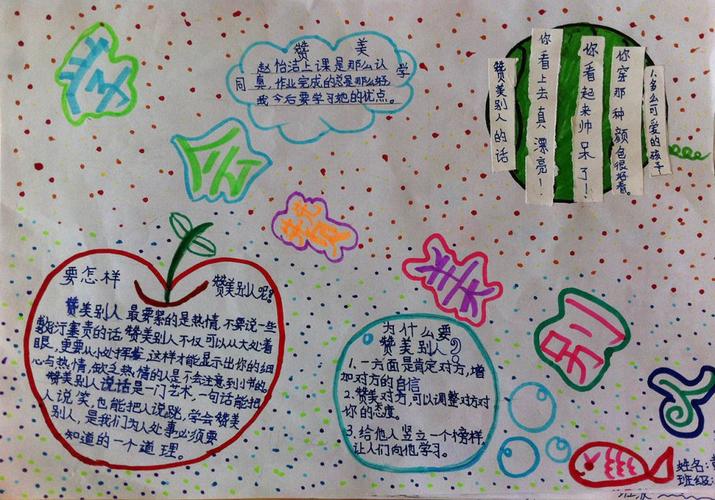 学
会
赞
美
别
人
赞 美
赵怡洁上课是那么认
同真,作业完成的总是那么好, 学
我今后要学习她的优点。
赞美别人的话
你看上去真漂亮!
你看起来帅呆了!
你穿那种颜色很好看。
多么可爱的孩子
要怎样 赞美别人呢?
赞美别人最要紧的是热情,不要说一些
敷衍塞责的话,赞美别人不仅可以从大处着
眼,更要从小处挥毫,这样才能显示出你的细
心与热情,缺乏热情的人是不去注意到小节的。
赞美别人说话是一门艺术,一句话能把
人说笑,也能把人说跳,学会赞美
别人,是我们为人处事必须要
知道的一个道理。
为什么要
赞美别人?
1.一方面是肯定对方,增
加对方的自信
2.赞美对方,可以调整对方对
你的态度。
3.给他人竖立一个榜样,
让人们向他学习。
姓名:
班级: